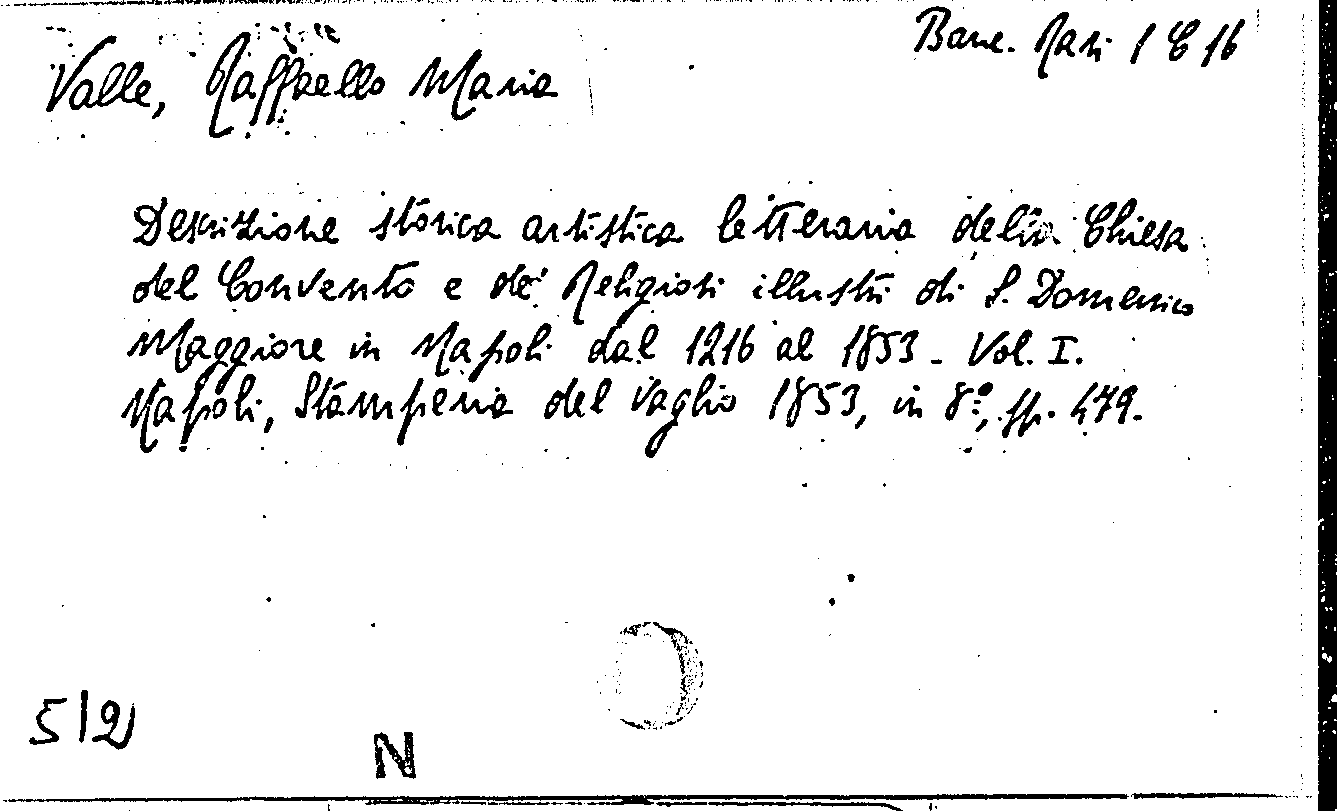 Banc. Rari 1 C 16
Valle, Raffaello Maria
Descrizione storica artistica letteraria della Chiesa
del Convento e de' Religiosi illustri di S. Domenico
Maggiore in Napoli dal 1216 al 1853 - Vol. I.
Napoli, Stamperia del Vaglio 1853, in 8º, pp. 479.
5|2)
N